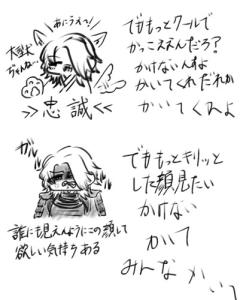 あにうえっ!
大型犬
ちゃんね…
>>忠誠<<
でももっとクールで
かっこええんだろ?
かけないんすよ
かいてくれだれか
かいてくれよ
ガルル
でももっとキリッと
した顔見たい
かけない
かいて
みんな
誰にも見えんようにこの顔して
欲しい気持ちある